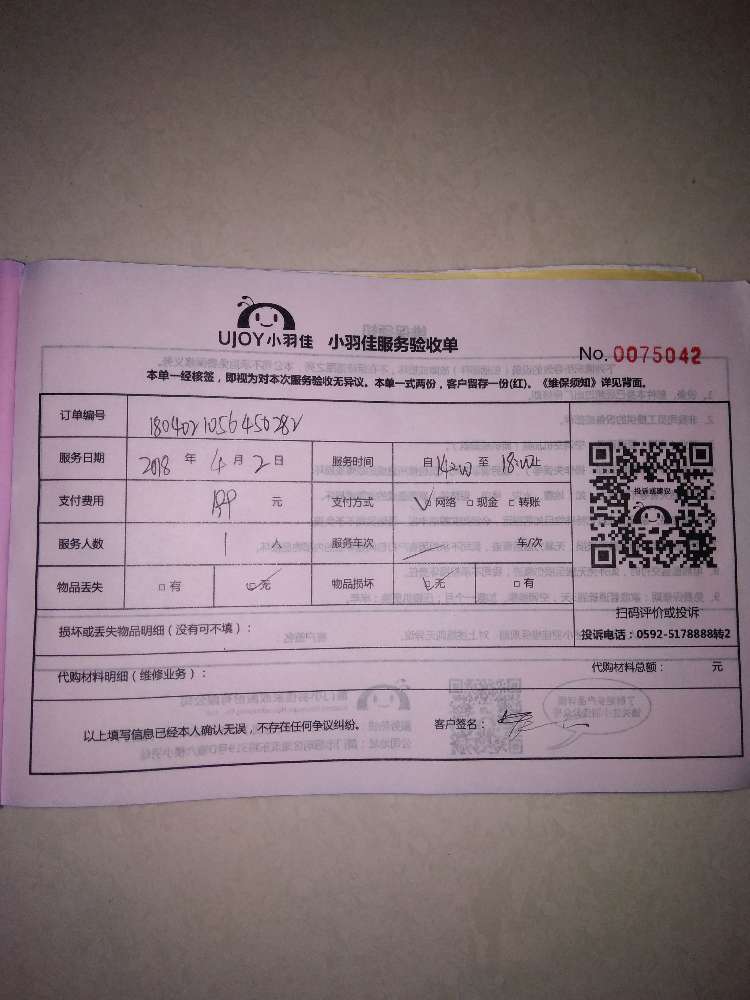 UJOY小羽佳 小羽佳服务验收单
No. 0075042
本单一经核签，即视为对本次服务验收无异议。本单一式两份，客户留存一份(红)。《维保须知》详见背面。
订单编号 1804021056450282
服务日期 2018 年 4 月 2 日 服务时间 自 14:00 至 18:00 止
支付费用 APP 元 支付方式 ☑ 网络 □ 现金 □ 转账
服务人数 1 人 服务车次 车/次
物品丢失 □ 有 ☑ 无 物品损坏 ☑ 无 □ 有
投诉或建议
扫码评价或投诉
投诉电话：0592-5178888转2
损坏或丢失物品明细（没有可不填）：
代购材料明细（维修业务）： 代购材料总额： 元
以上填写信息已经本人确认无误，不存在任何争议纠纷。 客户签名：